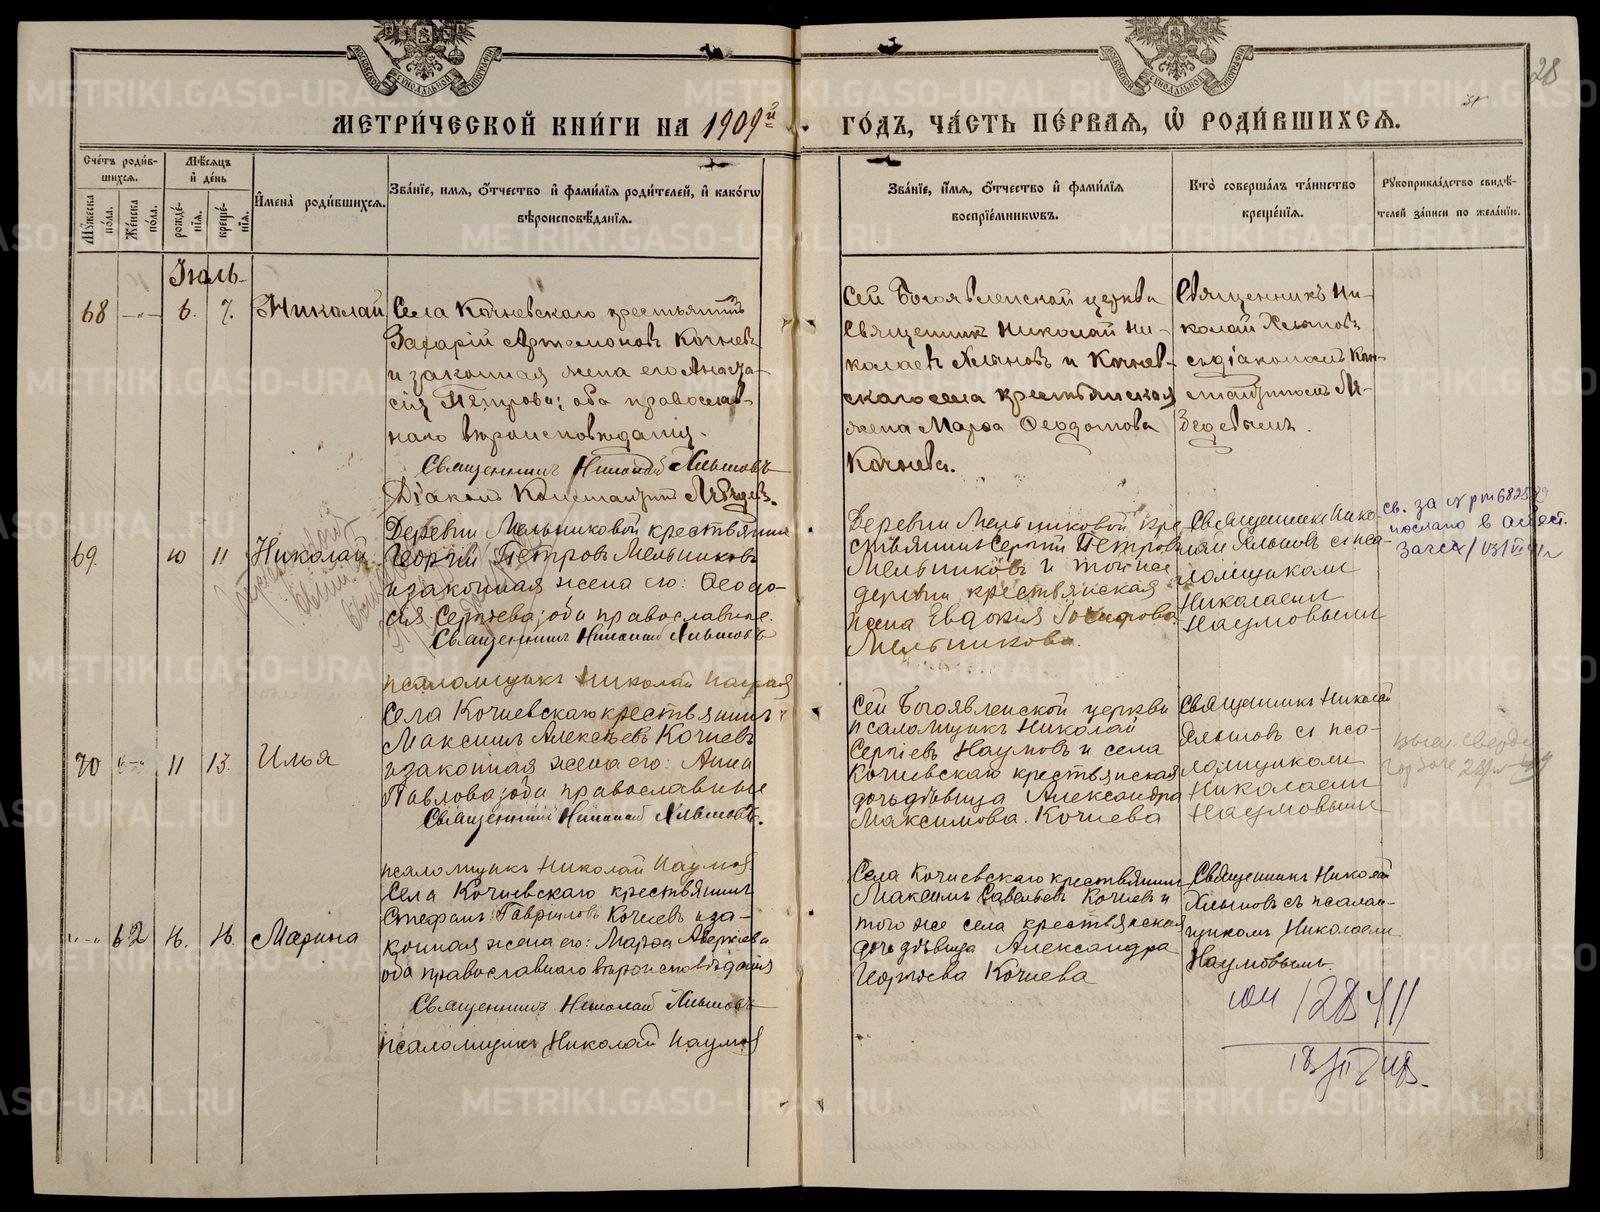 МЕТРИ́ЧЕСКОЙ КНИ́ГИ НА 1909й ГО́ДЪ, ЧА́СТЬ ПЕ́РВАѦ, Ѡ РОДИ́ВШИХСѦ.
28
Сче́тъ роди́в-
шихсѧ.
Мѣ́сѧцъ
и де́нь
Мꙋ́жеска
по́ла.
Же́нска
по́ла.
рожде́-
нїѧ.
креще́-
нїѧ.
Имена̀ роди́вшихсѧ.
Зва́нїе, имѧ, о́тчество и фами́лїѧ роди́телей, и како́гѡ
вѣроисповѣ́данїѧ.
Зва́нїе, и́мѧ, о́тчество и фами́лїѧ
воспрїе́мникѡвъ.
Кто̀ соверша́лъ та́инство
креще́нїѧ.
Рꙋкоприкла́дство свидѣ́-
телей за́писи по жела́нїю.
Іюль
68 6. 7. Николай
Села Кочневскаго крестьянинъ
Захарій Артамоновъ Кочневъ
и законная жена его Анаста-
сія Петрова; оба православ-
наго вѣроисповѣданія.
Священникъ Николай Хлыновъ
Діаконъ Константинъ
Сей Богоявленской церкви
Священникъ Николай Ни-
колаевъ Хлыновъ и Кочнев-
скаго села крестьянская
жена Марѳа Ѳеодотова
Кочнева.
Священникъ Ни-
колай Хлыновъ
съ діакономъ Кон-
стантиномъ
69. 10 11 Николай
Деревни Мельниковой крестьянинъ
Георгій Петровъ Мельниковъ
и законная жена его: Ѳеодо-
сія Сергѣева, оба православные.
Священникъ Николай Хлыновъ
псаломщикъ Николай Наумовъ
Деревни Мельниковой кре-
стьянинъ Сергій Петровъ
Мельниковъ и той же
деревни крестьянская
жена Евдокія
Мельникова.
Священникъ Нико-
лай Хлыновъ съ пса-
ломщикомъ
Николаемъ
Наумовымъ
св. за №
послано в
70 11 13. Илья
Села Кочневскаго крестьянинъ
Максимъ Алексѣевъ Кочневъ
и законная жена его: Анна
Павлова, оба православные
Священникъ Николай Хлыновъ.
псаломщикъ Николай Наумовъ
Сей Богоявленской церкви
псаломщикъ Николай
Сергіевъ Наумовъ и села
Кочневскаго крестьянская
дочь дѣвица Александра
Максимова Кочнева
Священникъ Николай
Хлыновъ съ пса-
ломщикомъ
Николаемъ
Наумовымъ
62 Марина
Села Кочневскаго крестьянинъ
Стефанъ Гавриловъ Кочневъ и за-
конная жена его: Марѳа Аверкіева
оба православнаго вѣроисповѣданія
Священникъ Николай Хлыновъ
псаломщикъ Николай Наумовъ
Села Кочневскаго крестьянинъ
Максимъ Савельевъ Кочневъ и
того же села крестьянская
дочь дѣвица Александра
Георгіева Кочнева
Священникъ Николай
Хлыновъ съ псалом-
щикомъ Николаемъ
Наумовымъ.
METRIKI.GASO-URAL.RU